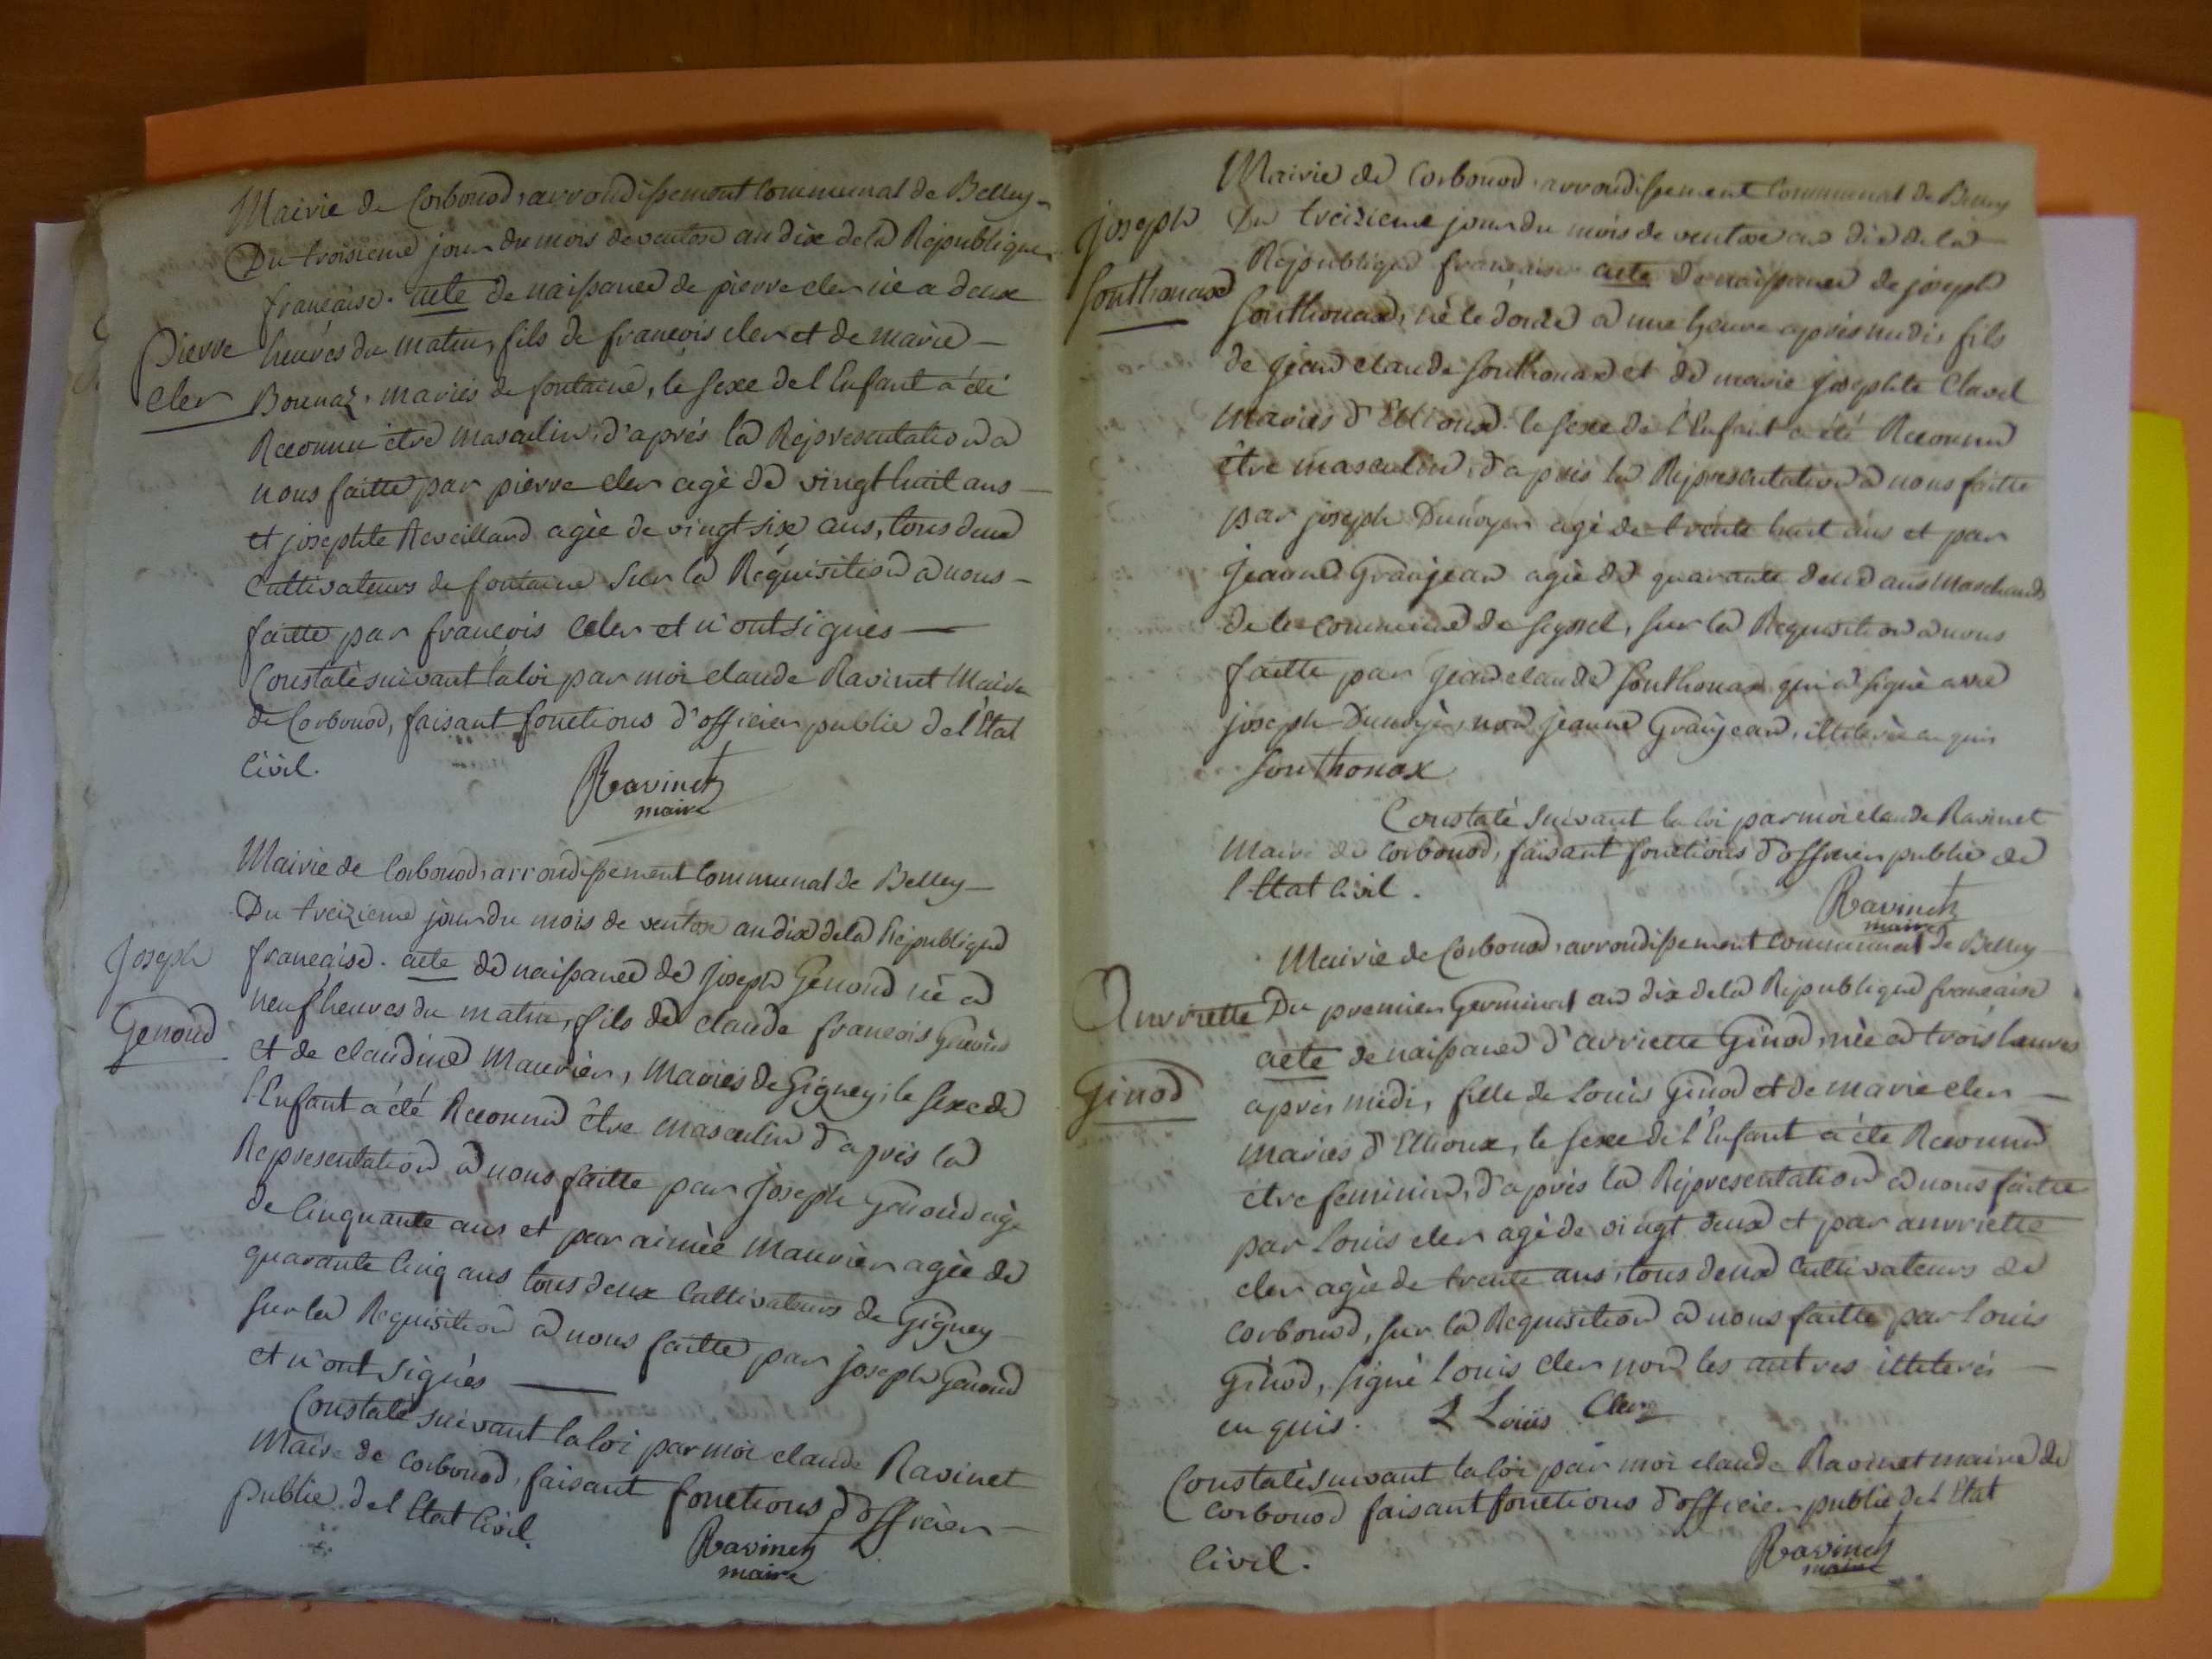 Mairie de Corbonod, arrondissement Communal de Belley
Du troisieme jour du mois de ventose an dix de la République
française. acte de naissance de pierre cler né a deux
Pierre
heures du matin, fils de françois cler et de marie
cler
Bornaz, mariés de fontaine, le sexe de l'Enfant a été
Reconnu être masculin, d'après la Représentation a
nous faitte par pierre cler agé de vingt huit ans
et josephte Reveilland agèe de vingt six ans, tous deux
Cultivateurs de fontaine Sur la Réquisition a nous
faitte par françois Cler et n'ont signés
Constaté suivant la loi par moi claude Ravinet Maire
de Corbonod, faisant fonctions d'officier public de l'Etat
Civil.
Ravinet
maire
Mairie de Corbonod, arrondissement Communal de Belley
Du treizieme jour du mois de ventose an dix de la République
Joseph
française. acte de naissance de Joseph Genoud né a
neuf heures du matin, fils de claude françois Genoud
Genoud
et de claudine Maurier, Mariés de Gigney; le sexe de
l'Enfant a été Reconnu être masculin d'après la
Représentation a nous faitte par Joseph Genoud agé
de Cinquante ans et par aimèe Maurier agèe de
quarante Cinq ans tous deux Cultivateurs de Gigney
Sur la Requisition a nous faitte par joseph Genoud
et n'ont signés
Constaté suivant la loi par moi claude Ravinet
Maire de Corbonod, faisant fonctions d'officier
public de l'Etat Civil.
Ravinet
maire
Mairie de Corbonod, arrondissement Communal de Belley
joseph
Du treisieme jour du mois de ventose an dix de la
République française acte de naissance de joseph
Sonthonax
Sonthonax, né le douze a une heure après midi, fils
de jean claude Sonthonax et de marie josephte Clavel
mariés d'Etlioux le sexe de l'Enfant a été Reconnu
être masculin, d'après la Représentation a nous faitte
par joseph Dunoyer agé de trente huit ans et par
Jeanne Granjean agèe de quarante deux ans Marchands
de la commune de seyssel, sur la Requisition a nous
faitte par jean claude Sonthonax qui a signé avec
joseph Dunoyer, non jeanne Granjean, illeterée enquis
Sonthonax
Constaté suivant la loi par moi claude Ravinet
Maire de Corbonod, faisant fonctions d'officier public de
l'Etat Civil.
Ravinet
maire
Mairie de Corbonod, arrondissement Communal de Belley
Anvriette
Du premier Germinal an dix de la République française
acte de naissance d'avriette Ginod, née a trois heures
Ginod
après midi, fille de Louis Ginod et de marie cler
mariés d'Etlioux, le sexe de l'Enfant a été Reconnu
être feminin, d'après la Représentation a nous faitte
par Louis cler agé de vingt deux et par anvriette
cler agèe de trente ans, tous deux Cultivateurs de
Corbonod, sur la Requisition a nous faitte par Louis
Ginod, signé Louis cler non les autres illeterés
enquis. L Louis Cler
Constaté suivant la loi par moi claude Ravinet maire de
Corbonod faisant fonctions d'officier public de l'Etat
Civil.
Ravinet
maire